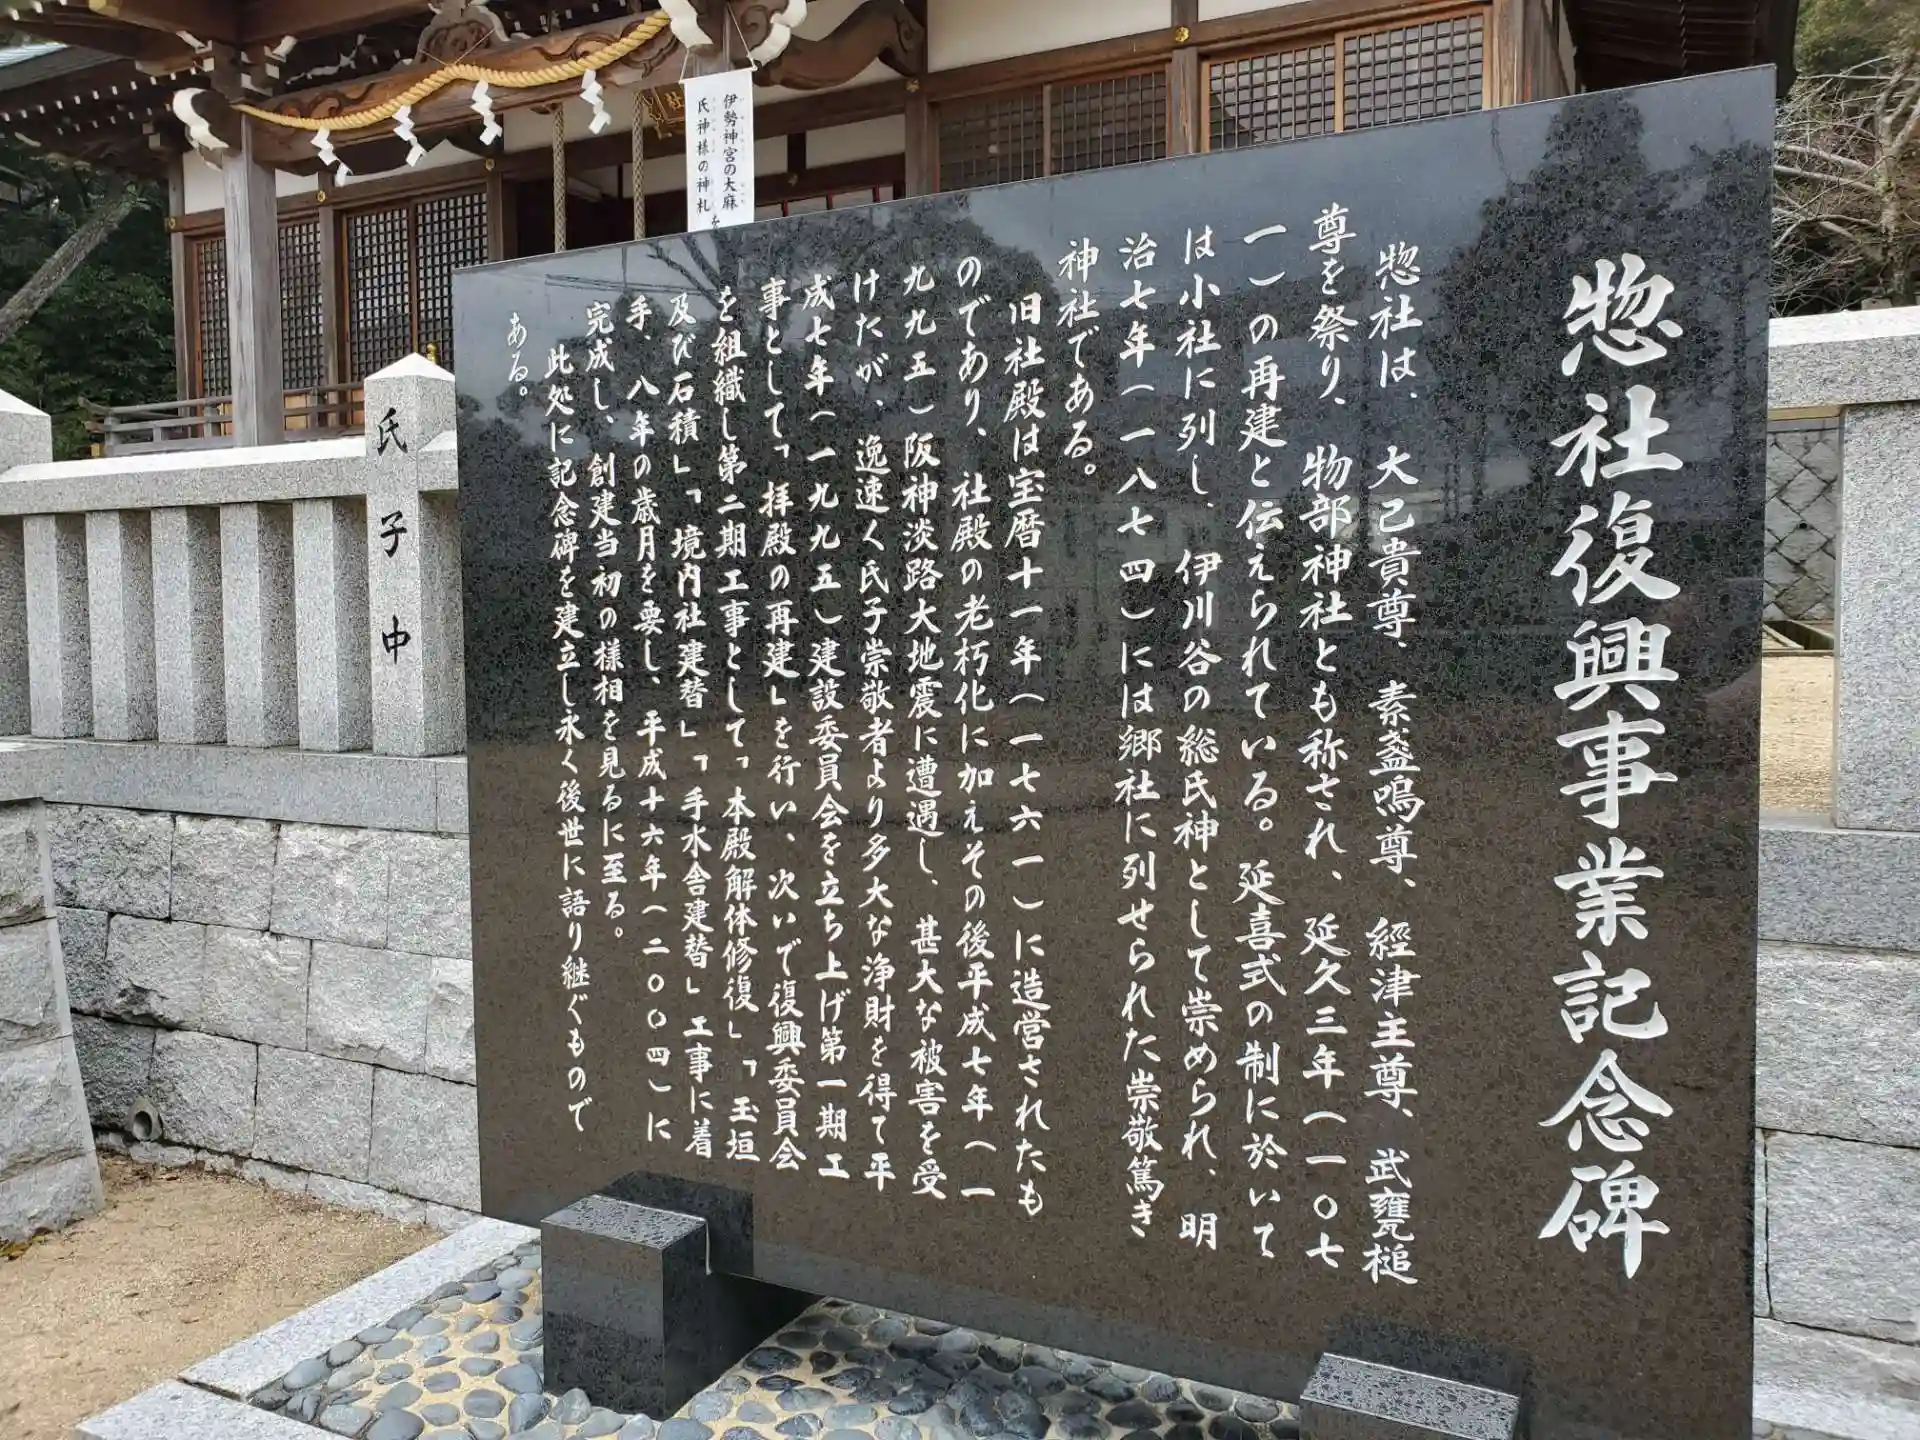 惣社復興事業記念碑
惣社は、大己貴尊、素盞嗚尊、經津主尊、武甕槌
尊を祭り、物部神社とも称され、延久三年（一〇七
一）の再建と伝えられている。延喜式の制に於いて
は小社に列し、伊川谷の総氏神として崇められ、明
治七年（一八七四）には郷社に列せられた崇敬篤き
神社である。
旧社殿は宝暦十一年（一七六一）に造営されたも
のであり、社殿の老朽化に加えその後平成七年（一
九九五）阪神淡路大地震に遭遇し、甚大な被害を受
けたが、逸速く氏子崇敬者より多大な浄財を得て平
成七年（一九九五）建設委員会を立ち上げ第一期工
事として「拝殿の再建」を行い、次いで復興委員会
を組織し第二期工事として「本殿解体修復」「玉垣
及び石積」「境内社建替」「手水舎建替」工事に着
手、八年の歳月を要し、平成十六年（二〇〇四）に
完成し、創建当初の様相を見るに至る。
此処に記念碑を建立し永く後世に語り継ぐもので
ある。
伊勢神宮の大麻
氏神様の神札を
氏子中
社